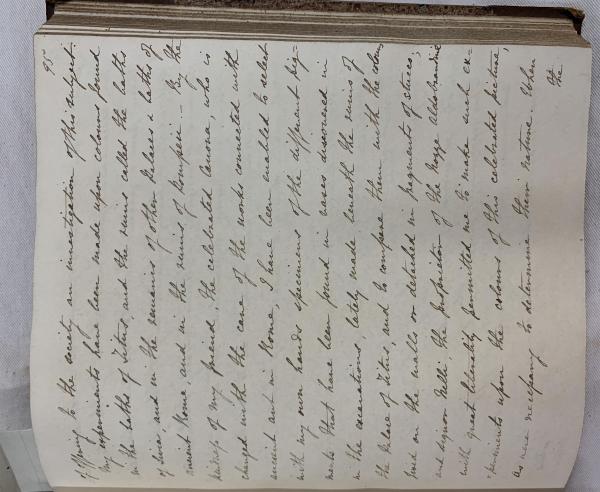 95
offering to the society an investigation of this subject.
My experiments have been made upon colours found
in the baths of Titus, and the ruins called the baths
of Livia and in the remains of other palaces & baths of
ancient Rome, and in the ruins of Pompeii. By the
kindness of my friend, the celebrated Canova, who is
charged with the care of the works connected with
ancient art in Rome, I have been enabled to select
with my own hands specimens of the different pig-
ments that have been found in vases discovered in
the excavations, lately made beneath the ruins of
the Palace of Titus, and to compare them with the colours
fixed on the walls or detached in fragments of stucco;
and Signor Nelli, the proprietor of the Nozze Aldobrandine
with great liberality permitted me to make such ex-
periments upon the colours of this celebrated picture,
as were necessary to determine their nature. When
the